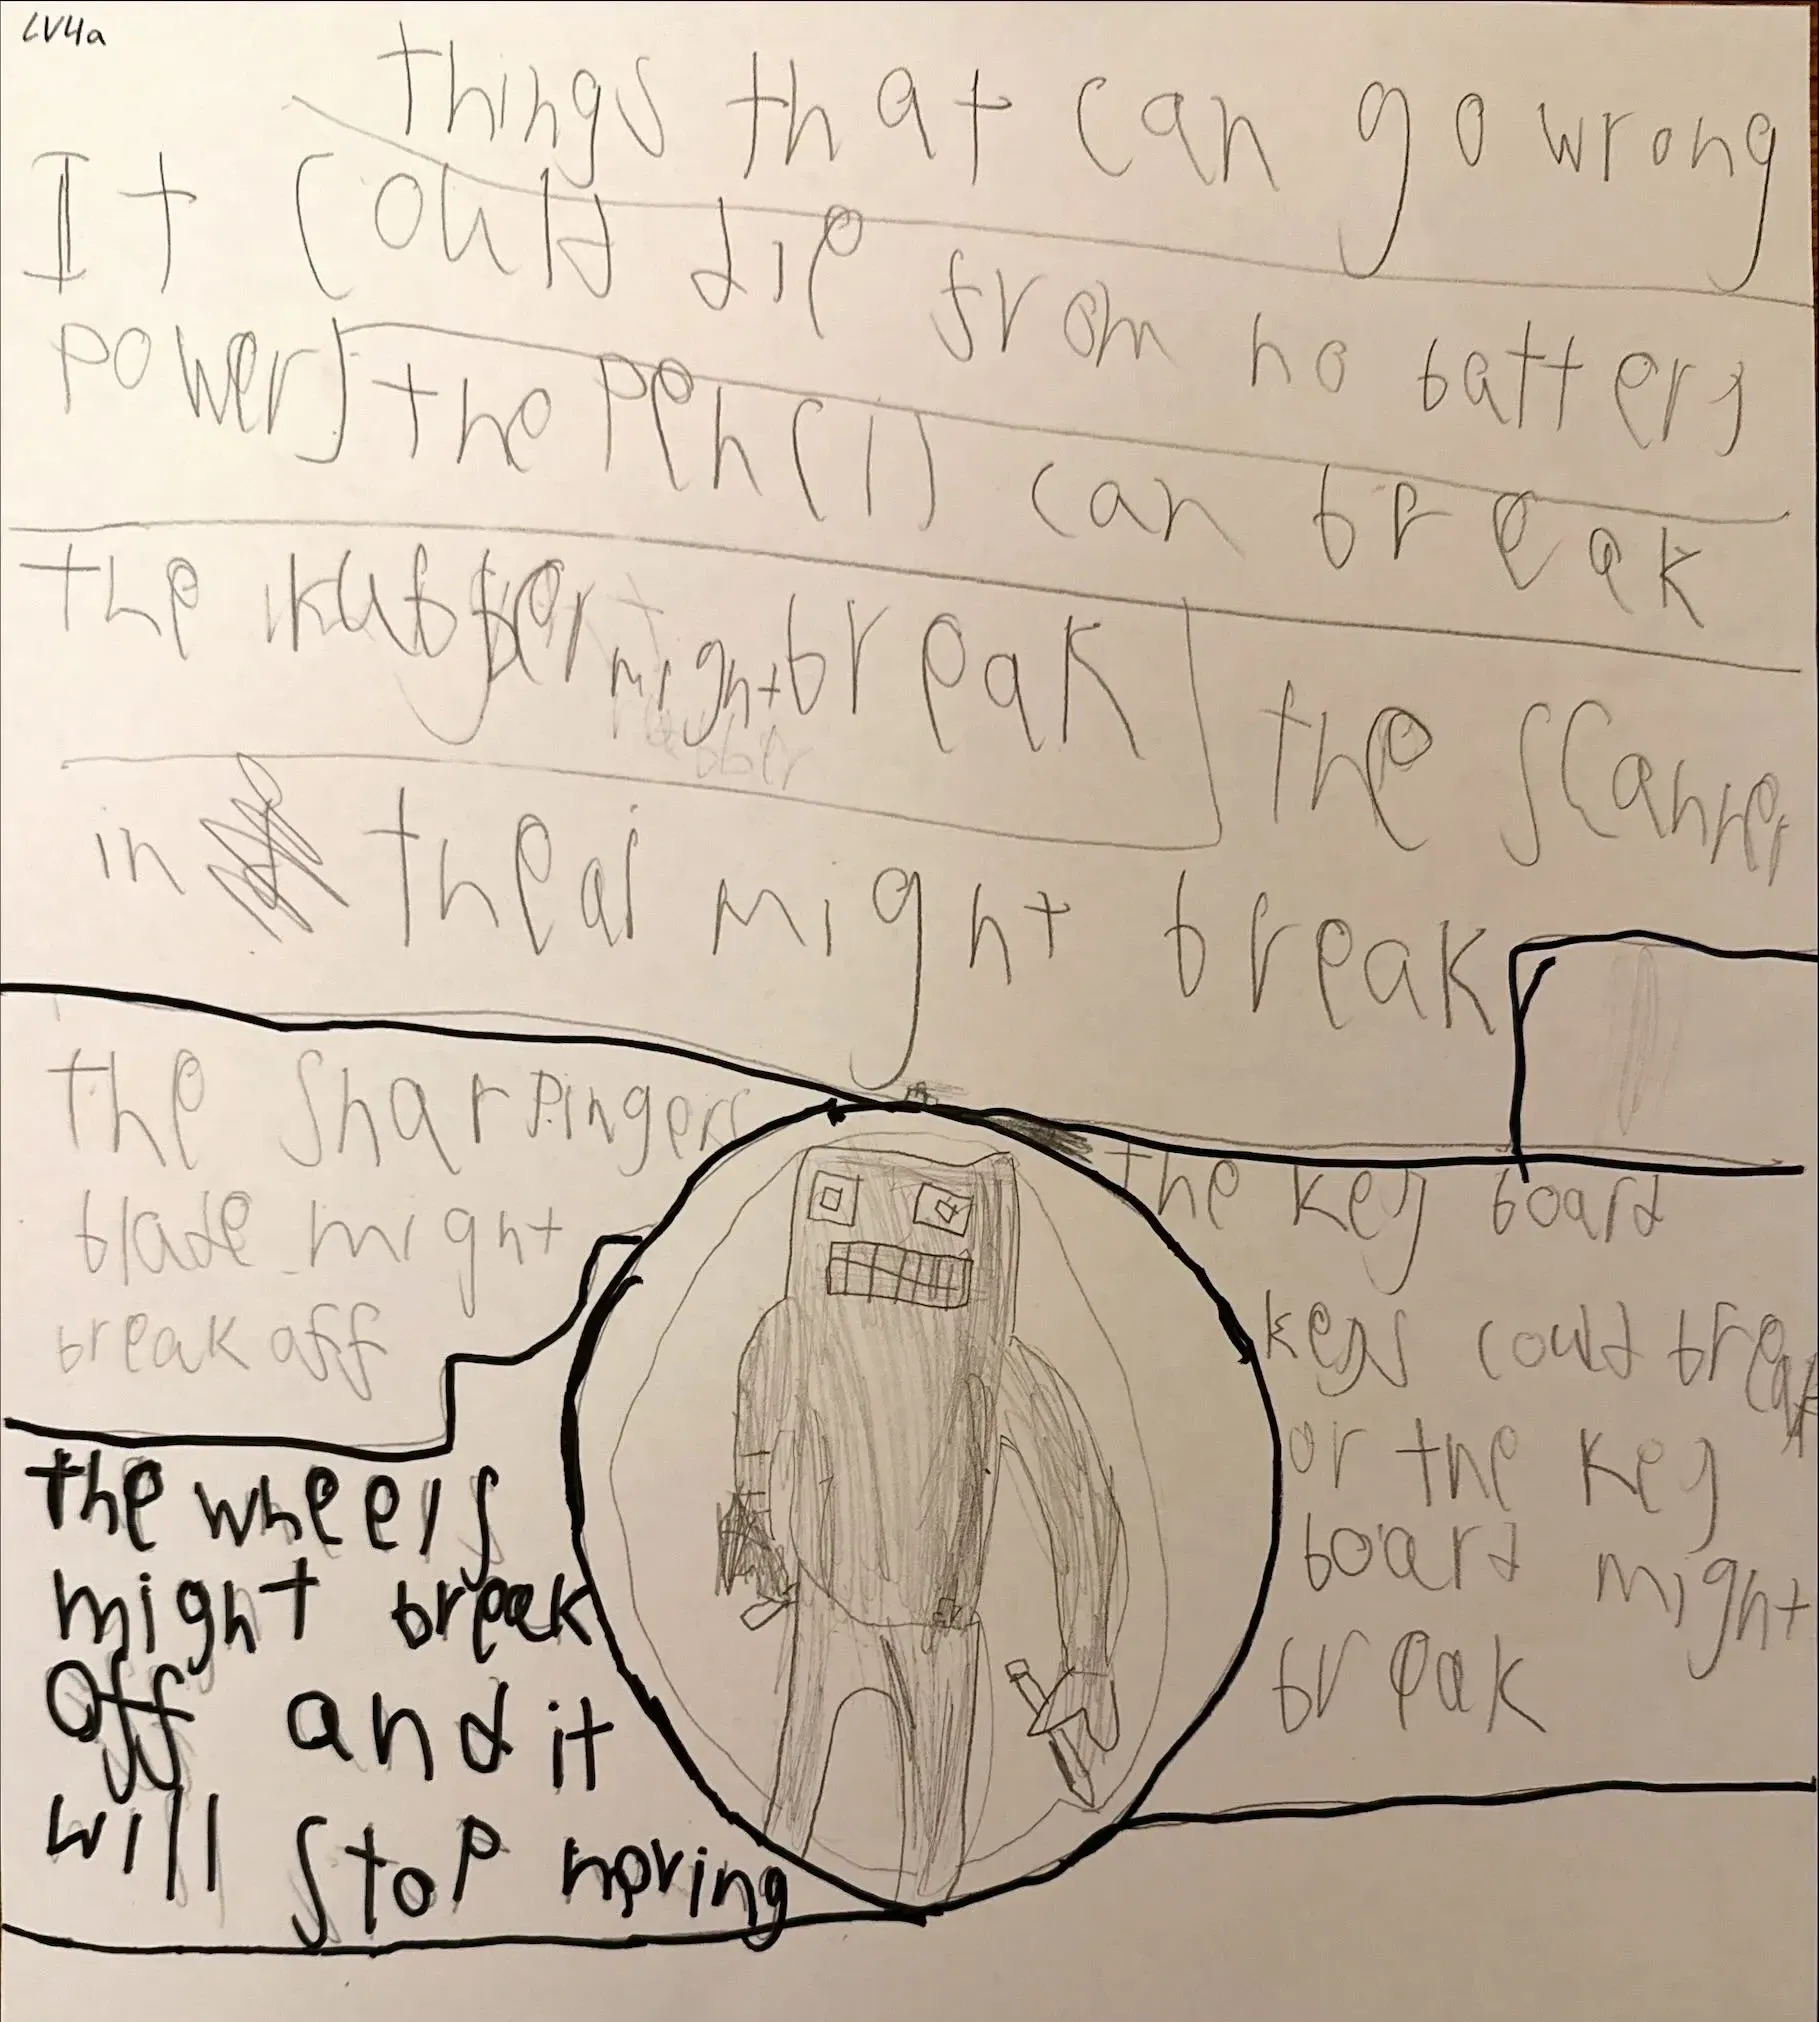 LV4a
things that can go wrong
It could die from no battery
power
the pencil can break
the rubber might break
rubber
the scanner
in the ai might break
the sharpingers
blade might
break off
the key board
keys could break
or the key
board might
break
the wheels
might break
off and it
will stop moving